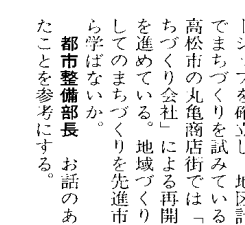 ーシップを確立し、地区計
でまちづくりを試みている
高松市の丸亀商店街では「
ちづくり会社」による再開
を進めている。地域づくり
してのまちづくりを先進市
ら学ばないか。
都市整備部長　お話のあ
たことを参考にする。